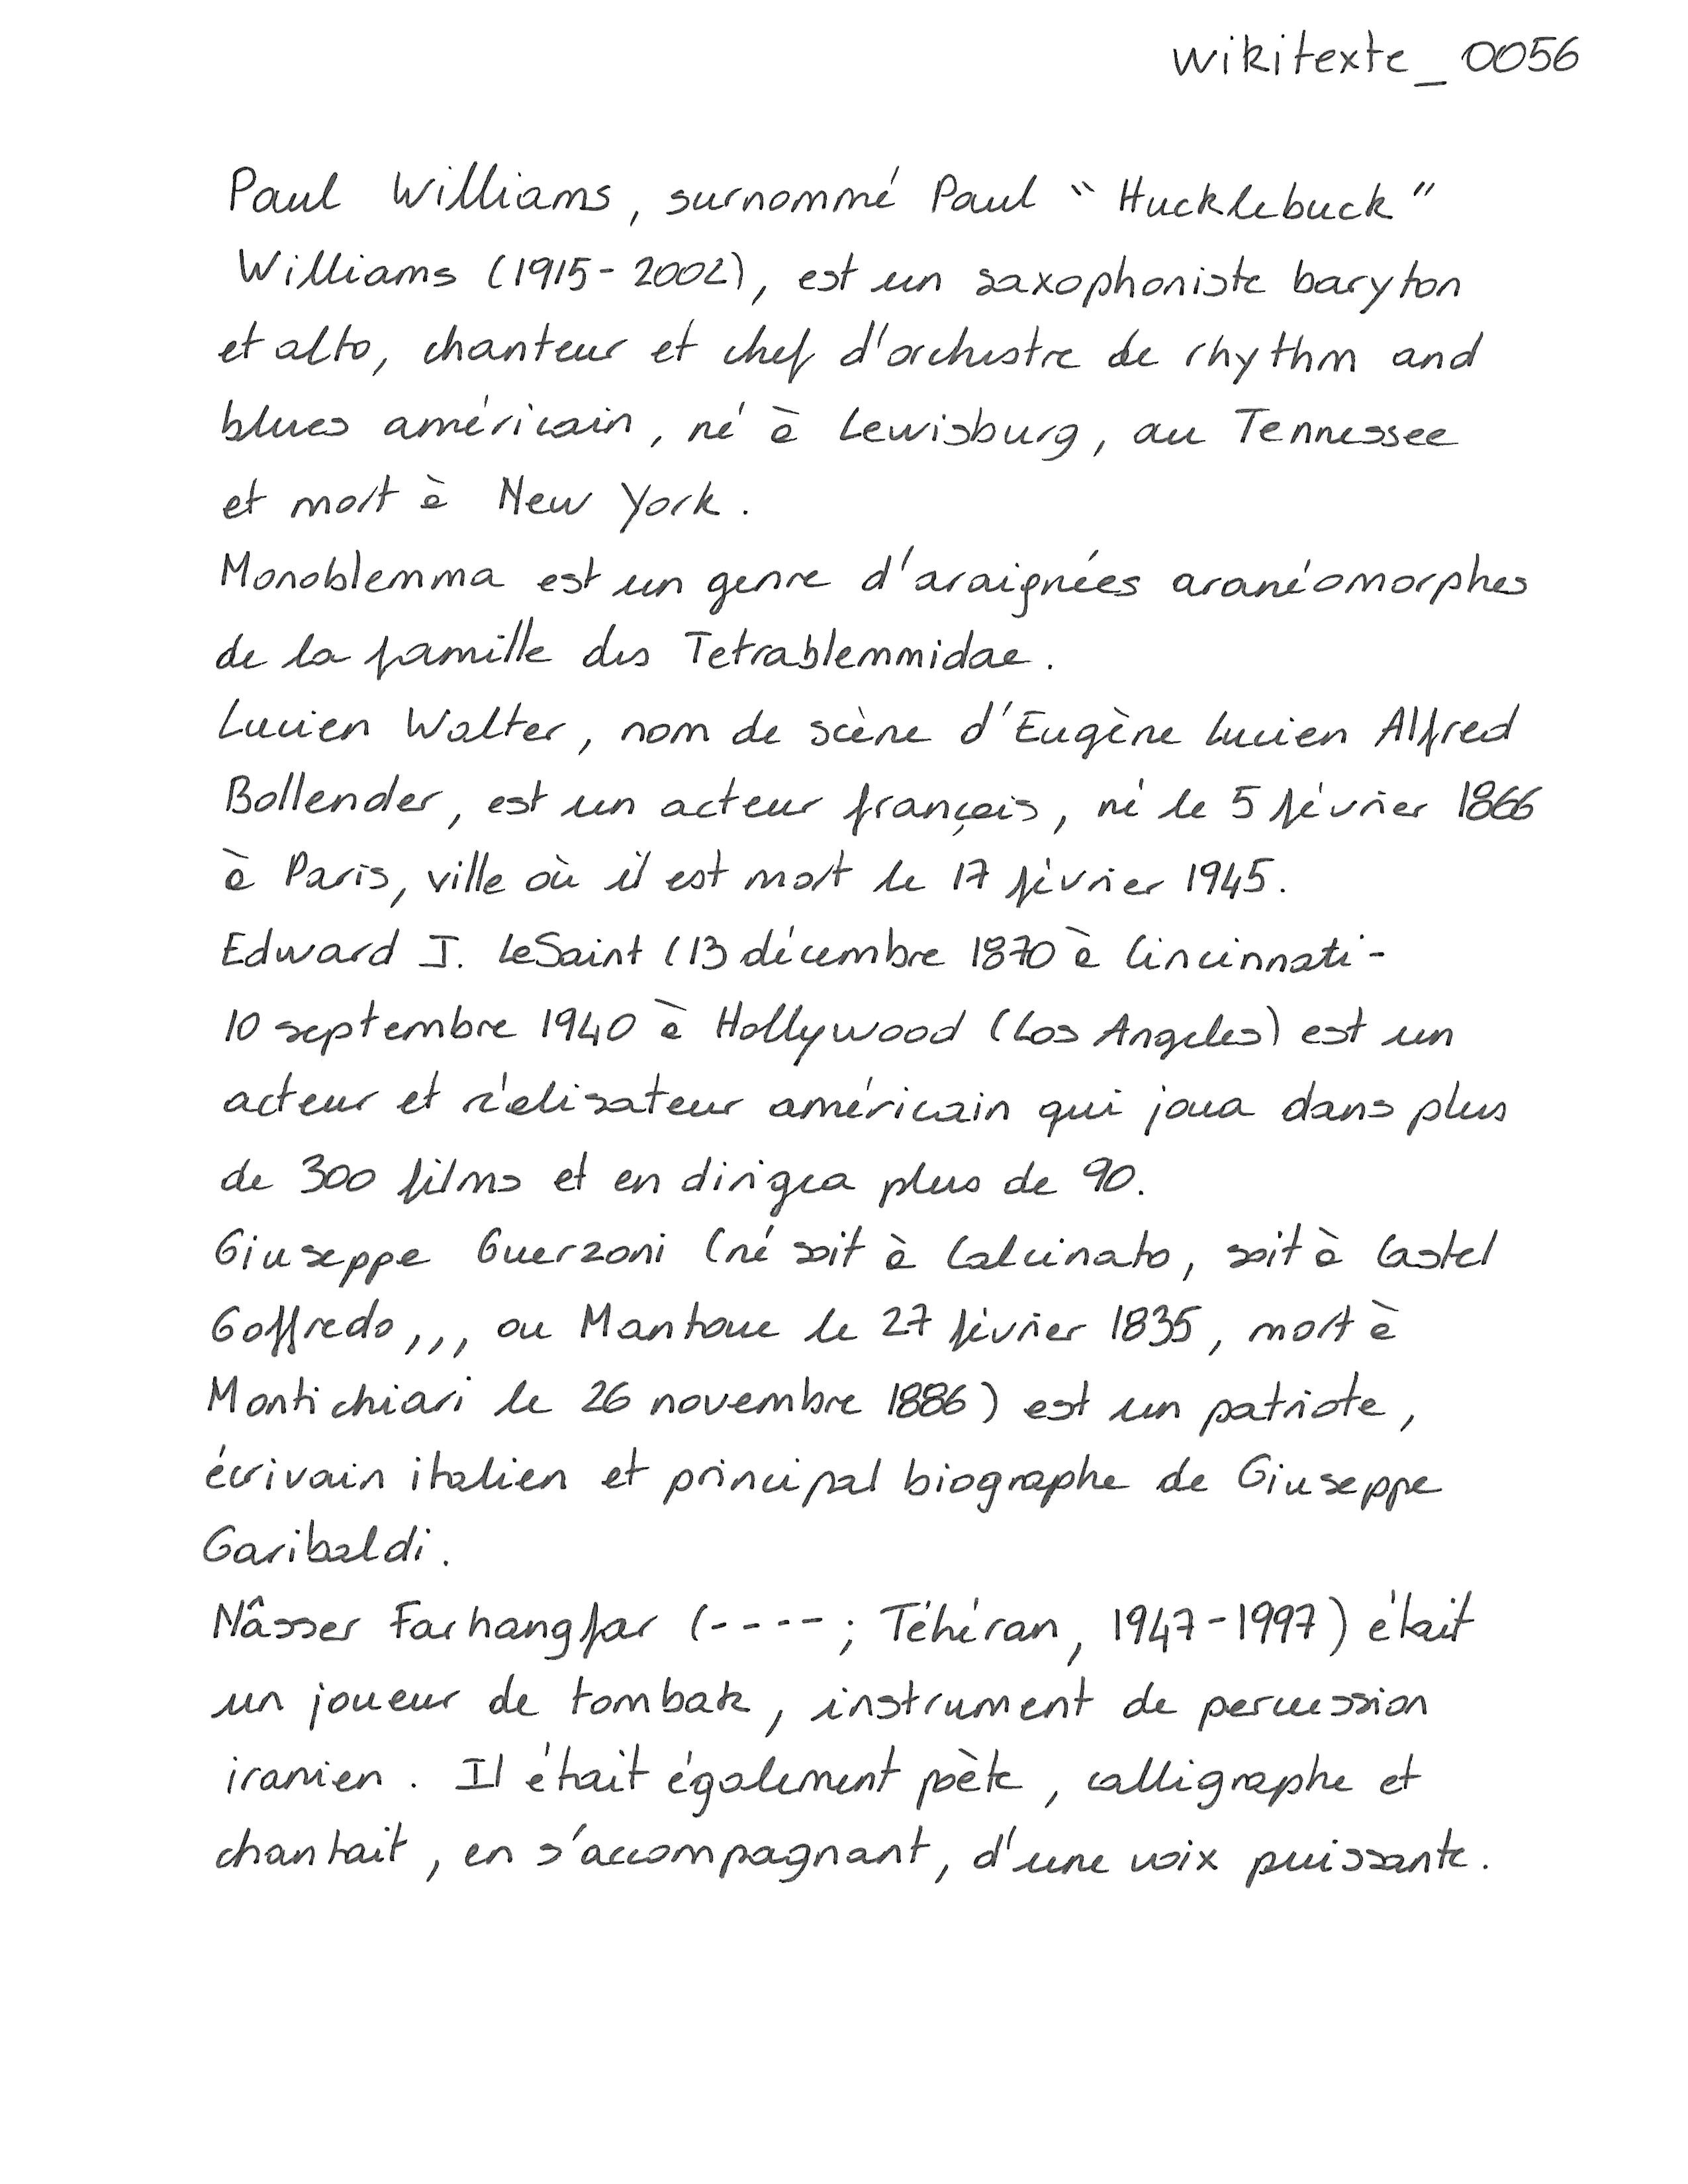 wikitexte_0056
Paul Williams, surnommé Paul "Hucklebuck"
Williams (1915-2002), est un saxophoniste baryton
et alto, chanteur et chef d'orchestre de rhythm and
blues américain, né à Lewisburg, au Tennessee
et mort à New York.
Monoblemma est un genre d'araignées aranéomorphes
de la famille des Tetrablemmidae.
Lucien Walter, nom de scène d'Eugène Lucien Alfred
Bollender, est un acteur français, né le 5 février 1866
à Paris, ville où il est mort le 17 février 1945.
Edward J. LeSaint (13 décembre 1870 à Cincinnati-
10 septembre 1940 à Hollywood (Los Angeles) est un
acteur et réalisateur américain qui joua dans plus
de 300 films et en dirigea plus de 90.
Giuseppe Guerzoni (né soit à Calcinato, soit à Castel
Goffredo,,, ou Mantoue le 27 février 1835, mort à
Montichiari le 26 novembre 1886) est un patriote,
écrivain italien et principal biographe de Giuseppe
Garibaldi.
Nâsser Farhangfar (----; Téhéran, 1947-1997) était
un joueur de tombak, instrument de percussion
iranien. Il était également poète, calligraphe et
chantait, en s'accompagnant, d'une voix puissante.